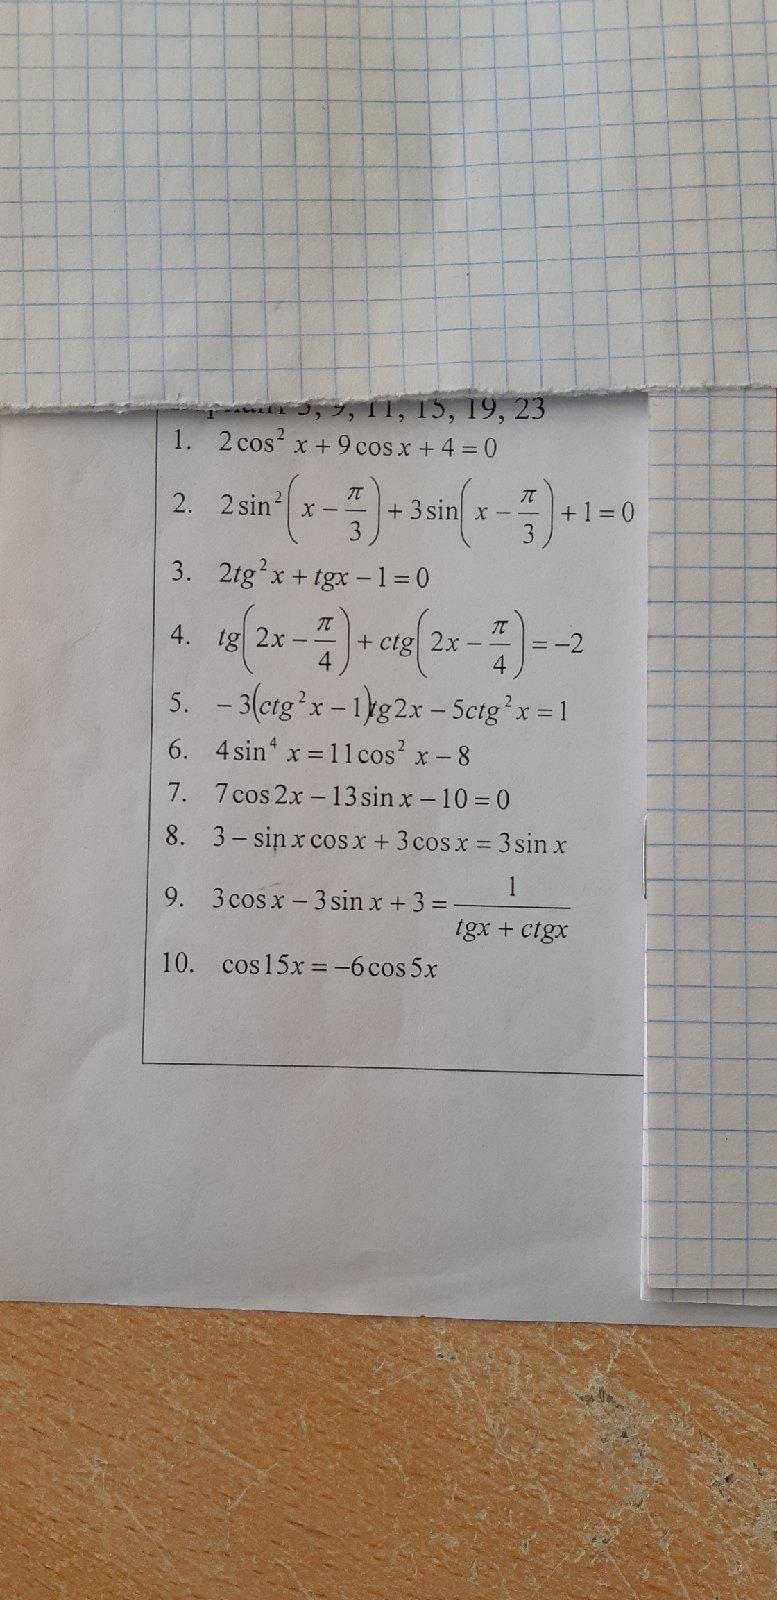 5, 9, 11, 15, 19, 23
1. 2cos² x + 9cosx + 4 = 0
2. 2sin²(x − π/3) + 3sin(x − π/3) + 1 = 0
3. 2tg²x + tgx − 1 = 0
4. tg(2x − π/4) + ctg(2x − π/4) = −2
5. −3(ctg²x − 1)tg2x − 5ctg²x = 1
6. 4sin⁴ x = 11cos² x − 8
7. 7cos2x − 13sinx − 10 = 0
8. 3 − sinxcosx + 3cosx = 3sinx
9. 3cosx − 3sinx + 3 = 1/(tgx + ctgx)
10. cos15x = −6cos5x